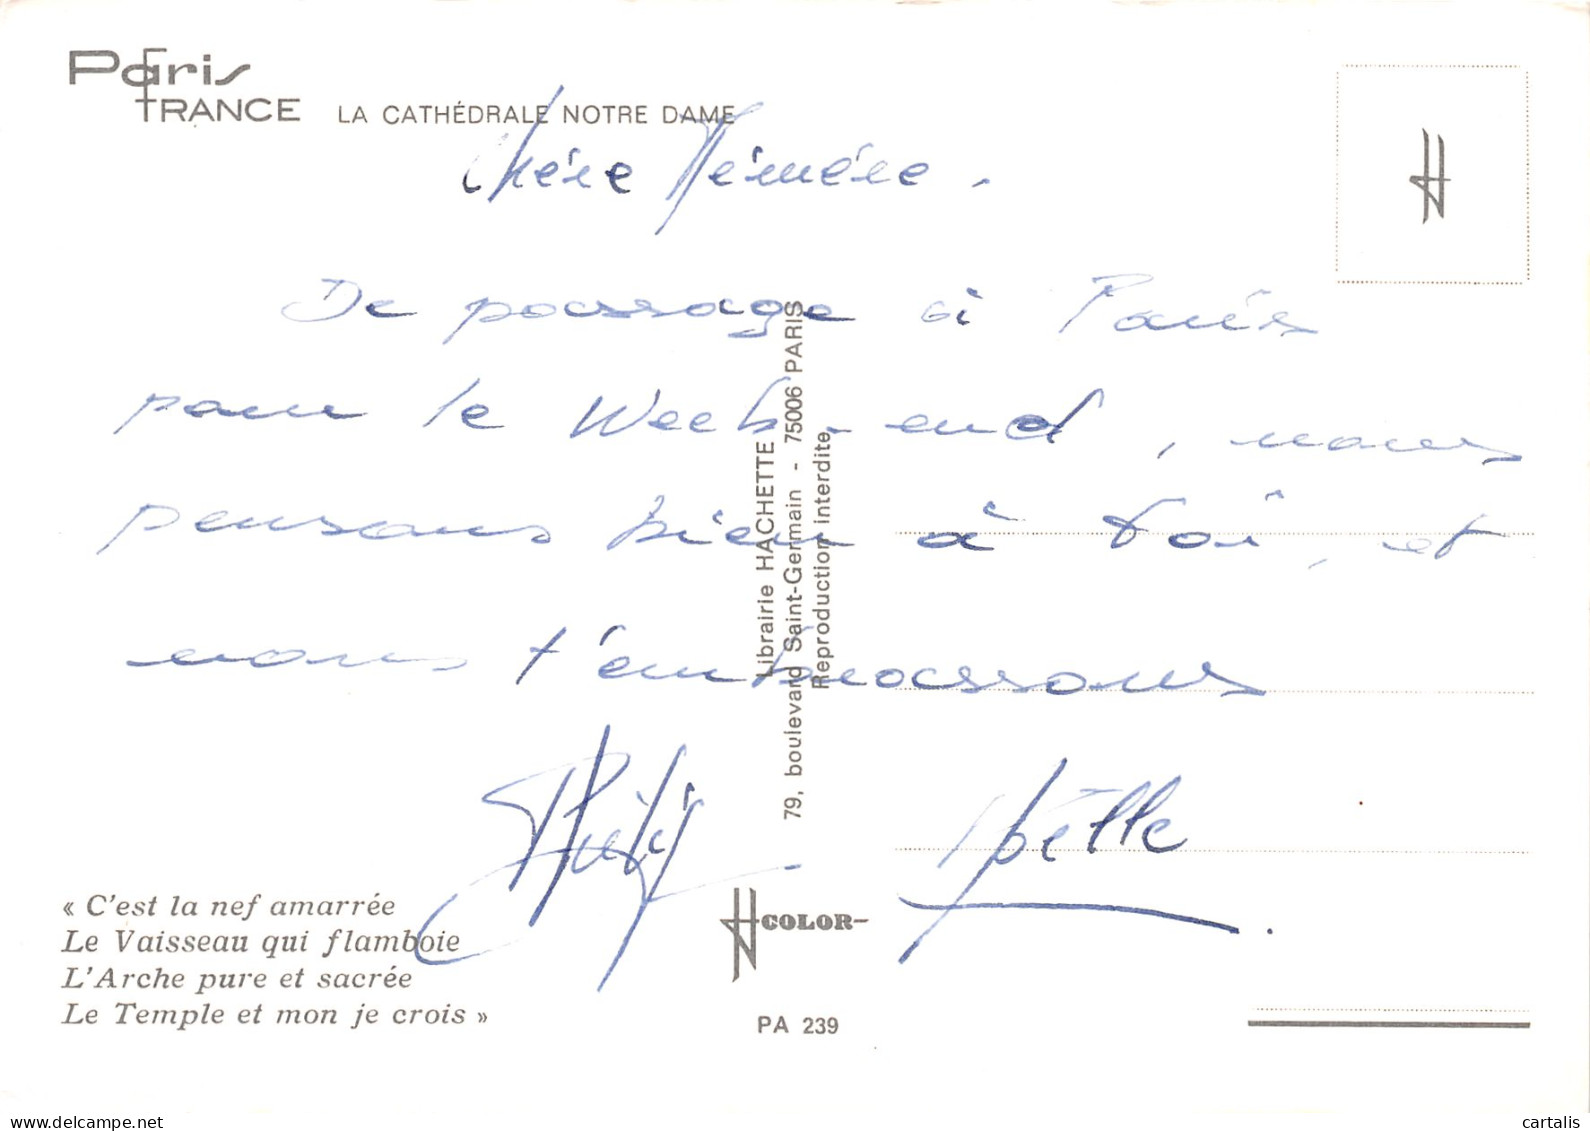 Paris
FRANCE LA CATHÉDRALE NOTRE DAME
Chère Mémère.
De passage à Paris
pour le Week-end, nous
pensons bien à toi, et
nous t'embrassons
Joëlle.
Librairie HACHETTE
79, boulevard Saint-Germain - 75006 PARIS
Reproduction interdite
« C'est la nef amarrée
Le Vaisseau qui flamboie
L'Arche pure et sacrée
Le Temple et mon je crois »
COLOR
PA 239
www.delcampe.net
cartalis